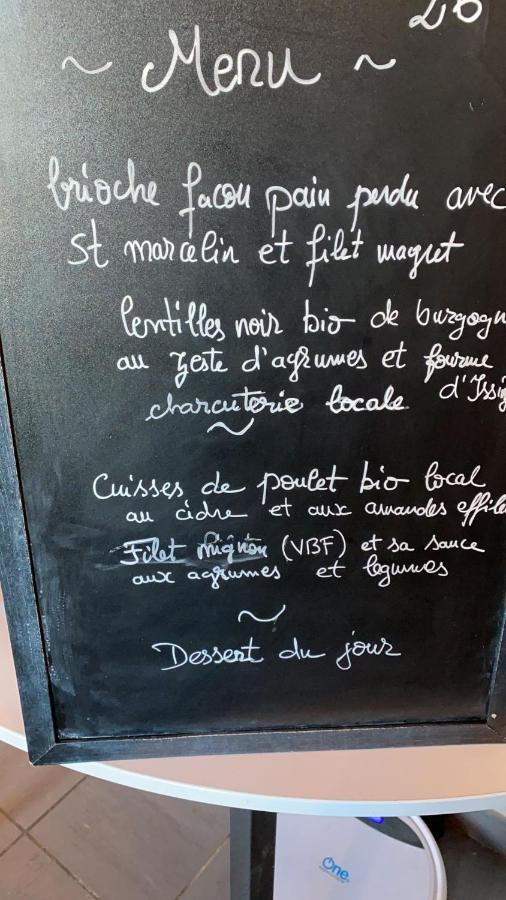 26
~ Menu ~
brioche facon pain perdu avec
St marcelin et filet magret
lentilles noir bio de burgogn
au zeste d'agrumes et fourme
charcuterie locale d'Issi
~
Cuisses de poulet bio local
au cidre et aux amandes effil
Filet mignon (VBF) et sa sauce
aux agrumes et legumes
~
Dessert du jour
One